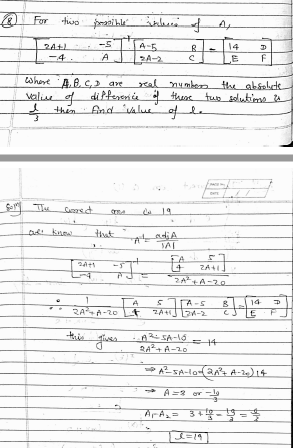 8 For two possible values of A,
[2A+1 -5; -4 A]^-1 [A-5 B; 2A-2 C] = [14 D; E F]
where A, B, C, D are real numbers the absolute
value of difference of these two solutions is
l/3 then find value of l.
The correct ans is 19
we know that A^-1 = adjA/|A|
[2A+1 -5; -4 A]^-1 = [A 5; 4 2A+1] / 2A²+A-20
∴ 1/2A²+A-20 [A 5; 4 2A+1] [A-5 B; 2A-2 C] = [14 D; E F]
this gives A²-5A-10 / 2A²+A-20 = 14
⇒ A²-5A-10 = (2A²+A-20)14
⇒ A=3 or -10/3
A₁-A₂ = 3+10/3 = 19/3 = l/3
l=19